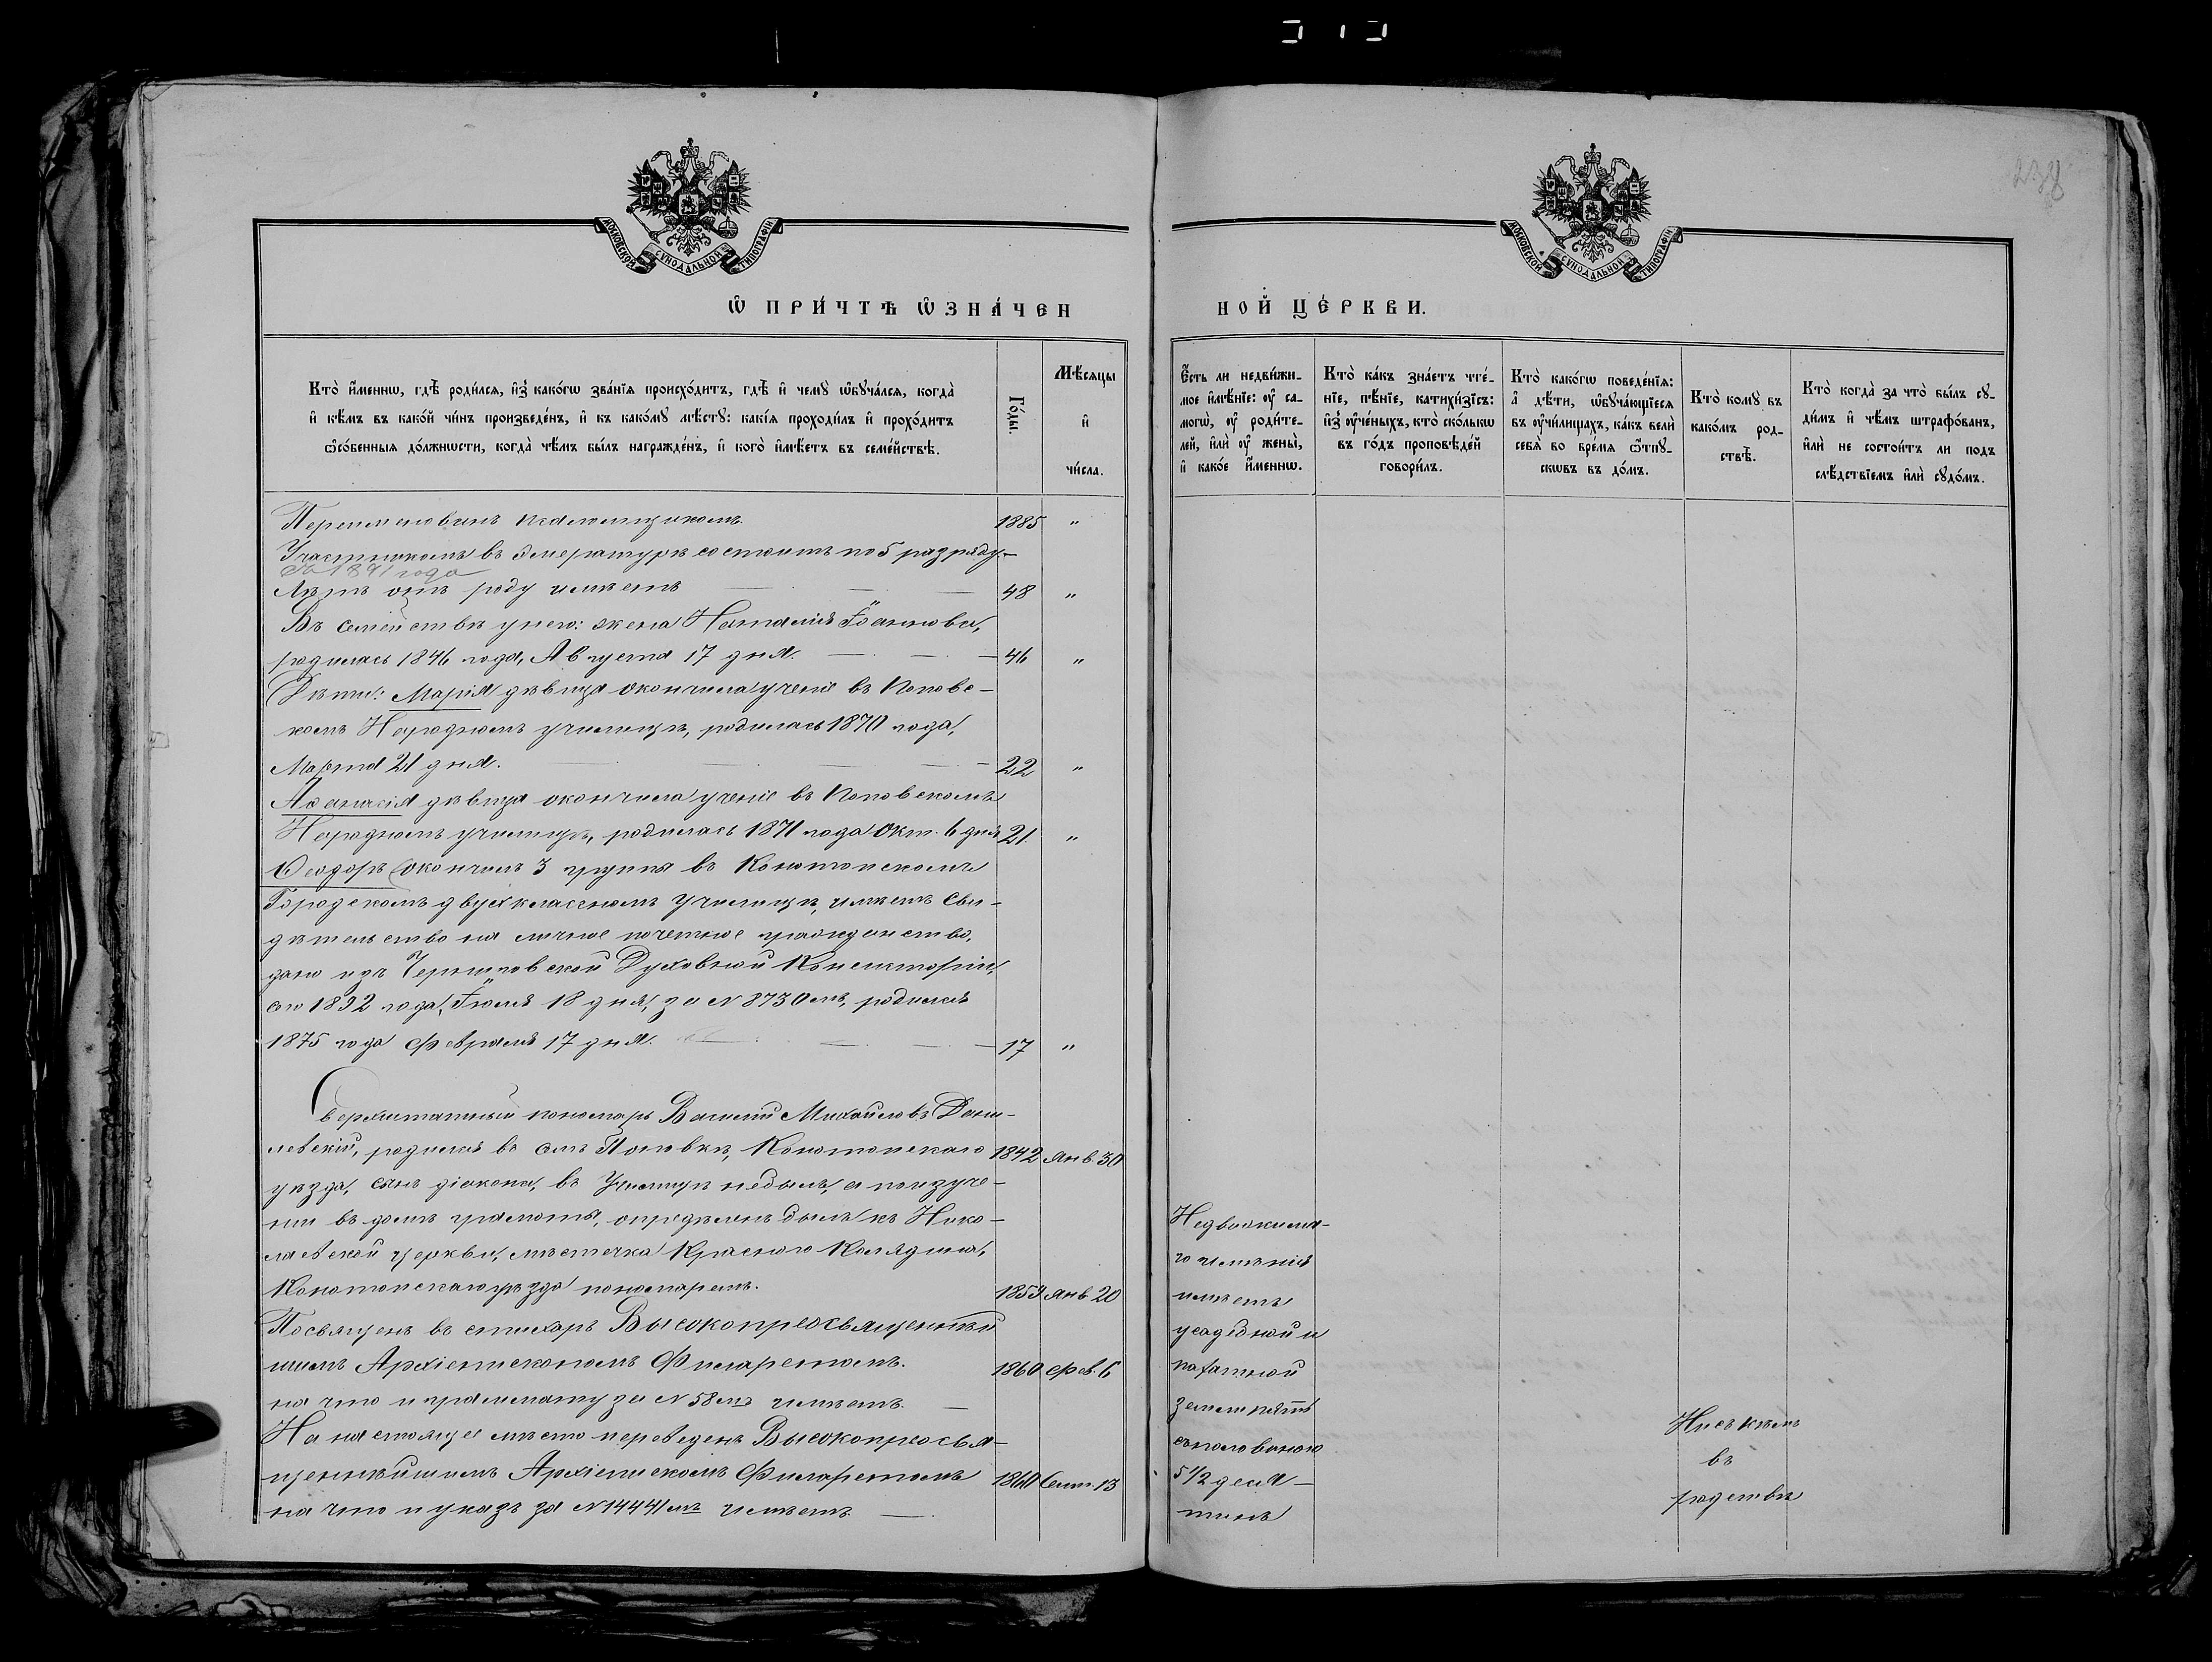 238
МОСКОВСКОЙ СѴНОДАЛЬНОЙ ТИПОГРАФІИ
МОСКОВСКОЙ СѴНОДАЛЬНОЙ ТИПОГРАФІИ
Ѡ ПРИ́ЧТѢ ѠЗНА́ЧЕН
НОЙ ЦЕ́РКВИ.
Кто̀ и҆́менно, гдѣ̀ роди́лся, и҆з̾ како́гѡ зва́нїѧ происхо́дитъ, гдѣ̀ и҆ чемꙋ̀ ѡ҆бꙋча́лся, когда̀
и҆ кѣ́мъ въ како́й чи́нъ произведе́нъ, и҆ къ како́мꙋ мѣ́стꙋ: какі́ѧ проходи́лъ и҆ прохо́дитъ
ѻ҆со́бенныѧ до́лжнѡсти, когда̀ чѣ́мъ бы́лъ награжде́нъ, и҆ кого̀ и҆мѣ́етъ въ семе́йствѣ.
Го́ды.
Мѣ́сяцы
и҆
чи́сла.
Е҆́сть ли недви́жи-
мое и҆мѣ́нїе: ᲂу҆ са-
могѡ̀, ᲂу҆ роди́те-
лей, и҆лѝ ᲂу҆ жены̀,
и҆ како́е и҆́меннѡ.
Кто̀ ка́къ зна́етъ чте́-
нїе, пѣ́нїе, катихи́зїсъ:
и҆з̾ ᲂу҆че́ныхъ, кто̀ ско́лькѡ
въ го́дъ проповѣ́дей
говори́лъ.
Кто̀ како́гѡ поведе́нїѧ:
а҆ дѣ́ти, ѡ҆бꙋча́ющїесѧ
въ ᲂу҆чи́лищахъ, ка́къ велѝ
себѧ̀ во вре́мѧ ѿпꙋ-
скѡвъ въ до́мъ.
Кто̀ комꙋ̀ въ
како́мъ род-
ствѣ̀.
Кто̀ когда̀ за что̀ бы́лъ сꙋ-
ди́мъ и҆ чѣ́мъ штрафо́ванъ,
и҆лѝ не состои́тъ ли подъ
слѣ́дствїемъ и҆лѝ сꙋдо́мъ.
Переименованъ псаломщикомъ. 1885 "
Участникомъ въ эмеритурѣ состоитъ по 5 разряду.
Съ 1891 года
Лѣтъ отъ роду имѣетъ 48 "
Въ семействѣ у него: жена Наталія Іоаннова,
родилась 1846 года, Августа 17 дня. 46 "
Дѣти: Марія дѣвица окончила ученіе въ Поповс-
комъ Народномъ училищѣ, родилась 1870 года,
Марта 21 дня. 22 "
Аѳанасія дѣвица окончила ученіе въ Поповскомъ
Народномъ училищѣ, родилась 1871 года Окт. 6 дня 21. "
Ѳеодоръ окончилъ 3 группы въ Конотопскомъ
Городскомъ двухклассномъ Училищѣ, имѣетъ сви-
дѣтельство на личное почетное гражданство,
дано изъ Черниговской Духовной Консисторіи,
сего 1892 года, Іюля 18 дня, за № 8730мъ, родился
1875 года Февраля 17 дня. 17 "
Сверхштатный пономарь Василій Михайловъ Дани-
левскій, родился въ селѣ Поповкѣ, Конотопскаго 1842 Янв. 30
уѣзда, сынъ діакона, въ Училищѣ не былъ, а по изуче-
ніи въ домѣ грамоты, опредѣленъ былъ къ Нико-
лаевской церкви, мѣстечка Краснаго Колядина,
Конотопскаго уѣзда пономаремъ. 1859 Янв. 20
Посвященъ въ стихарь Высокопреосвященнѣй
шимъ Архіепископомъ Филаретомъ. 1860 Фев. 6
на что и граммату за № 58мъ имѣетъ.
На настоящее мѣсто переведенъ Высокопреосвя-
щеннѣйшимъ Архіепископомъ Филаретомъ 1860 Сент. 13
на что и указъ за № 14441мъ имѣетъ.
Недвижима-
го имѣнія
имѣетъ
усадебной и
пахатной
земли пять
съ половиною
5 1/2 деся-
тинъ
Ни съ кѣмъ
въ
родствѣ